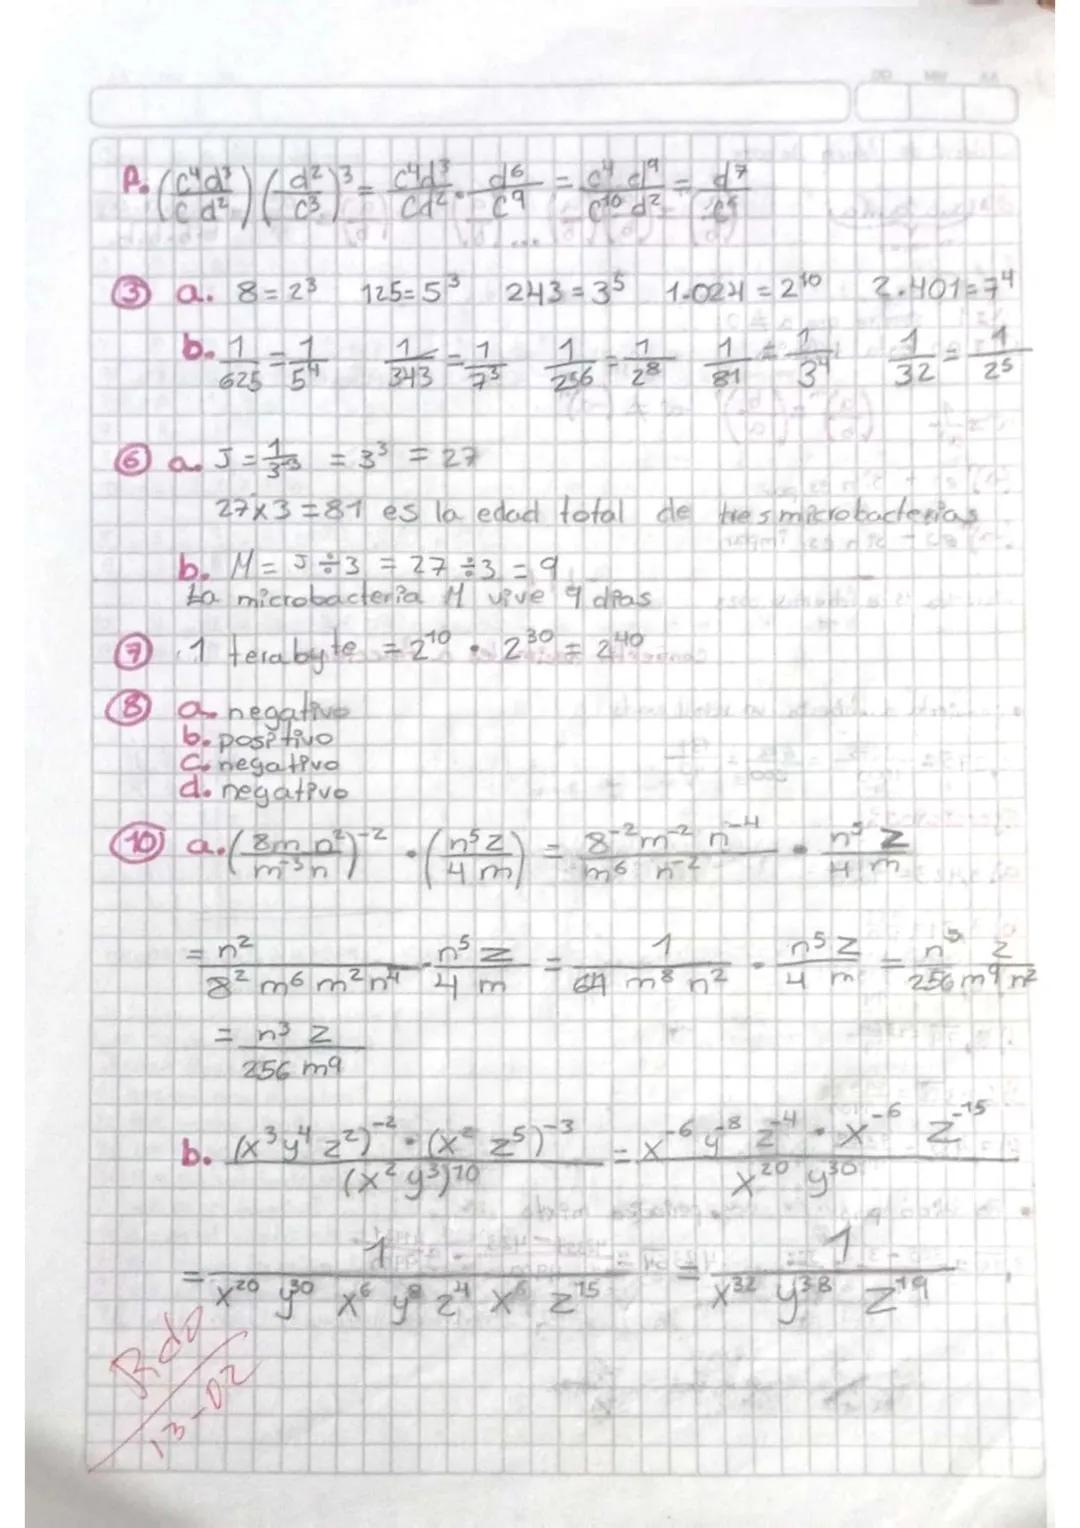 DD MM AA
P. (c⁴d³/c d²)(d²/c³)³ = c⁴d³/cd² · d⁶/c⁹ = c⁴ d⁹/c¹⁰ d² = d⁷/c⁶
③ a. 8 = 2³ 125 = 5³ 243 = 3⁵ 1.024 = 2¹⁰ 2.401 = 7⁴
b. 1/625 = 1/5⁴ 1/343 = 1/7³ 1/256 = 1/2⁸ 1/81 = 1/3⁴ 1/32 = 1/2⁵
⑥ a. J = 1/3⁻³ = 3³ = 27
27 x 3 = 81 es la edad total de tres microbacterias
b. M = J ÷ 3 = 27 ÷ 3 = 9
La microbacteria M vive 9 dias
⑦ 1 terabyte = 2¹⁰ · 2³⁰ = 2⁴⁰
⑧ a. negativo
b. positivo
c. negativo
d. negativo
⑩ a. (8m n²/m⁻³n)⁻² · (n⁵z/4m) = 8⁻²m⁻² n⁻⁴/m⁶ n⁻² · n⁵ z/4 m
= n²/8² m⁶ m² n⁴ · n⁵ z/4 m = 1/64 m⁸ n² · n⁵ z/4 m = n⁵ z/256 m⁹ n²
= n³ z/256 m⁹
b. (x³ y⁴ z²)⁻² · (x² z⁵)⁻³/(x² y³)¹⁰ = x⁻⁶ y⁻⁸ z⁻⁴ · x⁻⁶ z⁻¹⁵/x²⁰ y³⁰
= 1/x²⁰ y³⁰ x⁶ y⁸ z⁴ x⁶ z¹⁵ = 1/x³² y³⁸ z¹⁹
Rdo
13-02